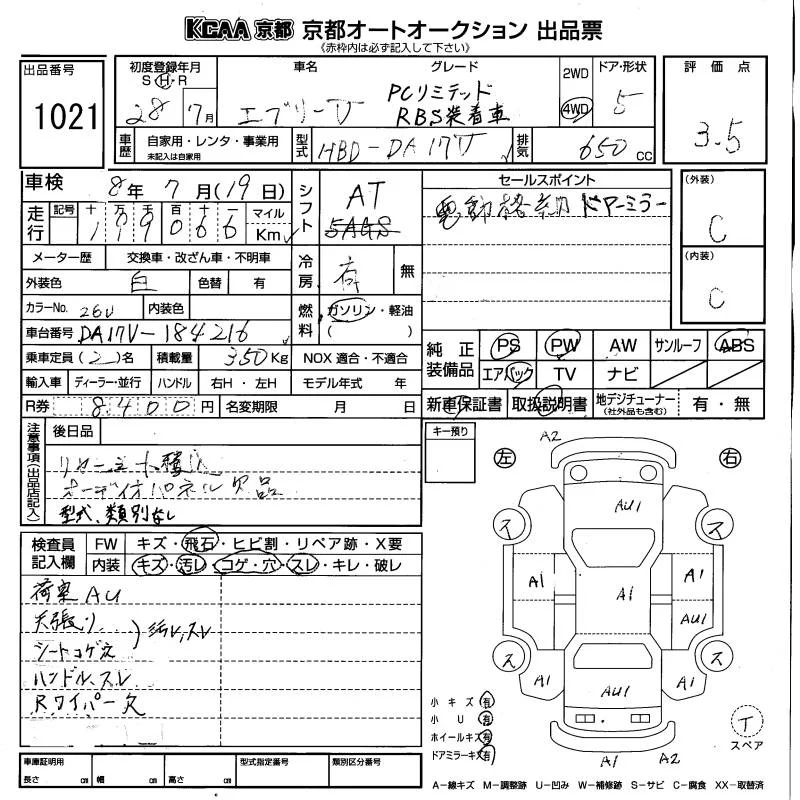 KCAA 京都 京都オートオークション 出品票
《赤枠内は必ず記入して下さい》
出品番号
1021
初度登録年月
S・H・R
28 7月
車名
エブリーV
グレード
PCリミテッド
RBS装着車
2WD
4WD
ドア・形状
5
評価点
3.5
車歴
自家用・レンタ・事業用
未記入は自家用
型式
HBD-DA17V
排気
650 CC
車検
8年 7月(19日)
走行
記号 十 万 千 百 十 一 マイル
119066 Km
シフト
AT
5AGS
セールスポイント
電動格納ドアーミラー
(外装)
C
(内装)
C
メーター歴 交換車・改ざん車・不明車
外装色 白 色替 有
冷房 有 無
カラーNo. 26U 内装色
燃料
ガソリン・軽油
( )
車台番号 DA17V-184216
乗車定員(2)名 積載量 350Kg NOX 適合・不適合
輸入車 ディーラー・並行 ハンドル 右H・左H モデル年式 年
R券 8,400円 名変期限 月 日
純正装備品
PS PW AW サンルーフ ABS
エアバック TV ナビ
新車保証書 取扱説明書 地デジチューナー(社外品も含む) 有・無
注意事項(出品店記入)
後日品
オーディオパネル欠品
型式、類別なし
キー預り
検査員記入欄
FW キズ・飛石・ヒビ割・リペア跡・X要
内装 キズ・汚レ・コゲ・穴・スレ・キレ・破レ
荷室AU
天張り
シートコゲ穴
汚レ、スレ
ハンドル、スレ
Rワイパー欠
左
右
A2
AU1
ス
ス
A1
A1
A1
AU1
ス
ス
A1
AU1
A1
A1
A2
小キズ 有
小U 有
ホイールキズ 有
ドアミラーキズ 有
T
スペア
車庫証明用
長さ cm 幅 cm 高さ cm
型式指定番号
類別区分番号
A-線キズ M-調整跡 U-凹み W-補修跡 S-サビ C-腐食 XX-取替済